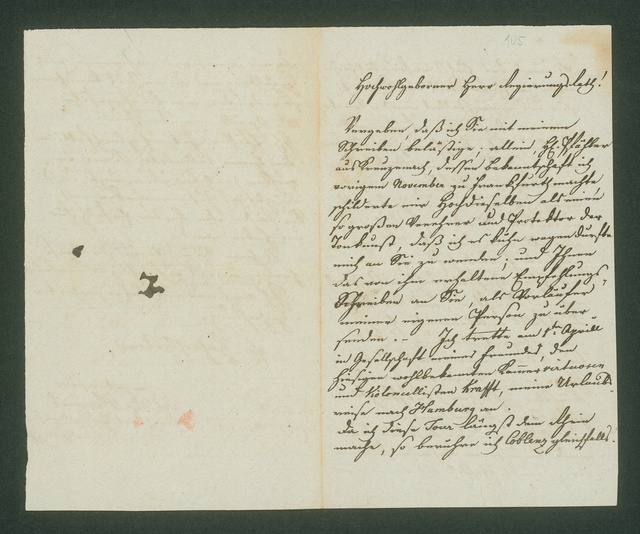 105
Hochwohlgeborner Herr Regierungs Rath!
Vergeben, daß ich Sie mit meinem
Schreiben belästige; allein, H:
aus Kreuzenach, dessen Bekanntschaft ich
vorigen November zu Frankfurth machte
schilderte mir Hochdieselben als einen
so großen Verehrer und Protektor der
Tonkunst, daß ich es kühn wagen durfte
mich an Sie zu wenden; und Ihnen
das von ihm erhaltene Empfehlungs
Schreiben an Sie, als Vorläufer
meiner eigenen Person zu über-
senden. – Ich trette am 1ten Aprill
in Gesellschaft meines Freundes, des
hiesigen wohlbekannten Kammervirtuosen
und Violoncellisten Krafft, meine Urlaubs-
reise nach Hamburg an.
Da ich diese Tour längst dem Rhein
mache, so berühre ich Coblenz gleichfalls.